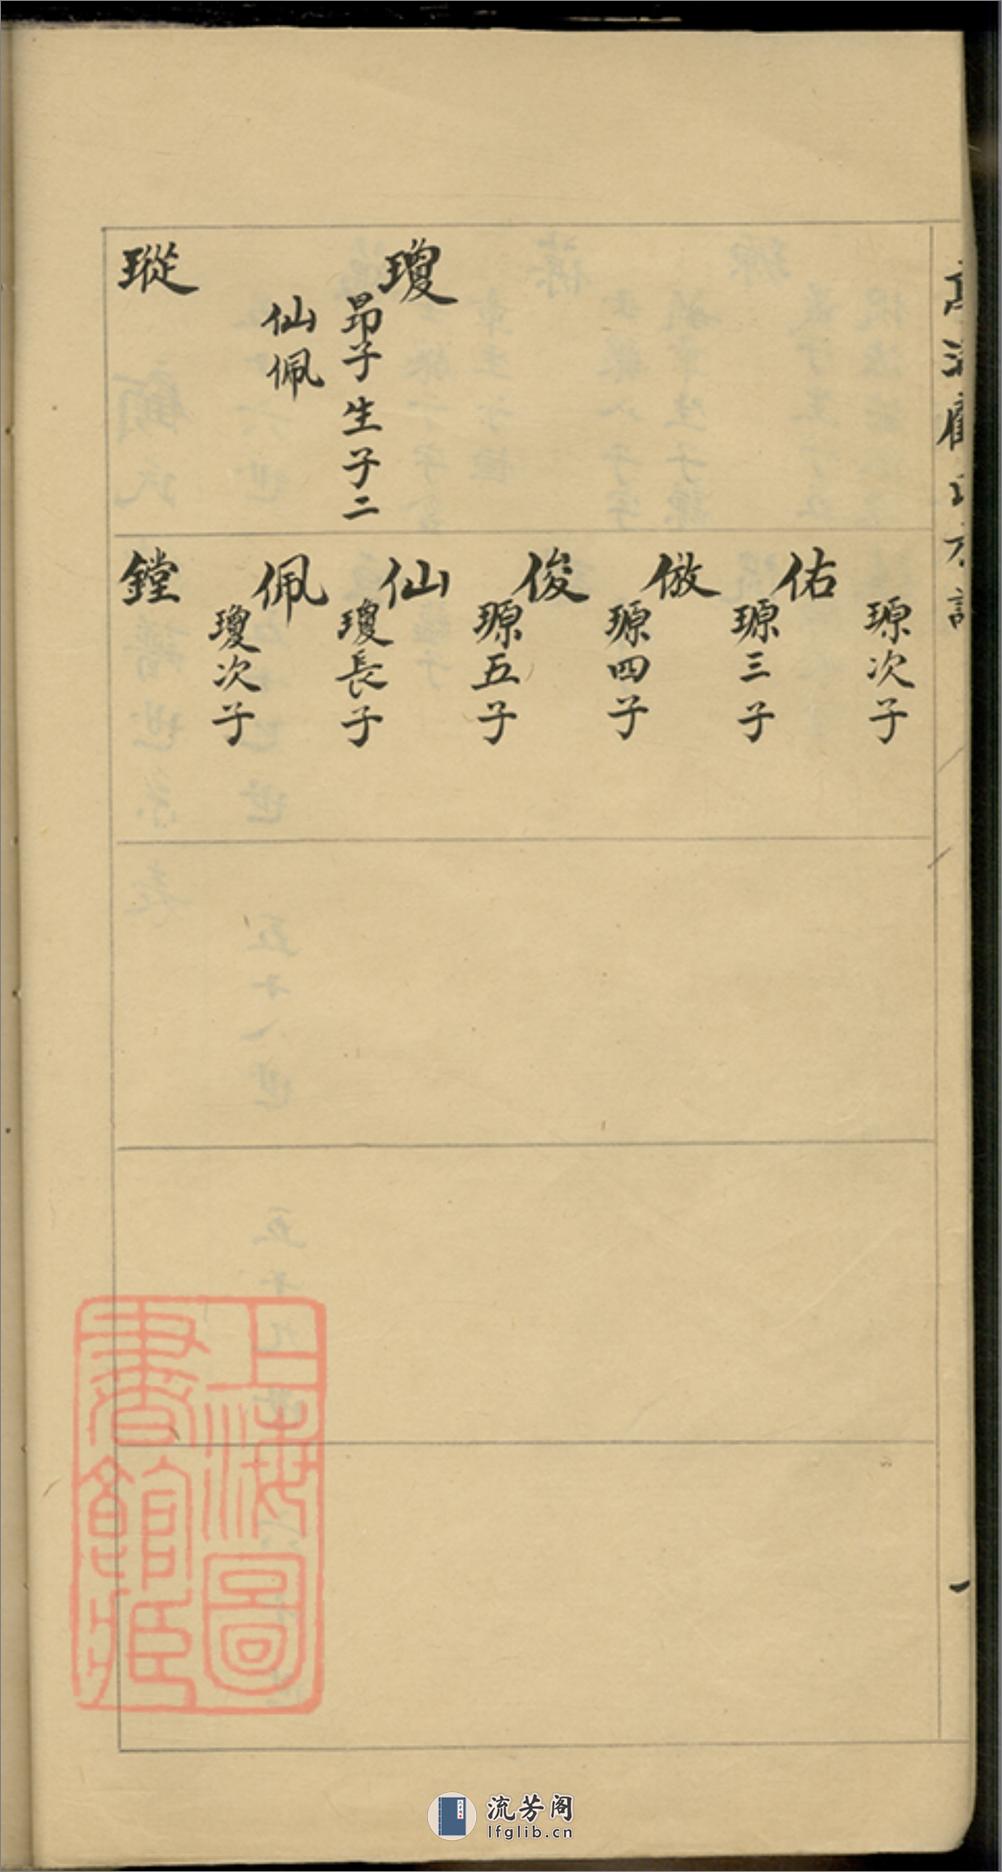 瓊
昂子生子二
仙佩
瑽
源次子
佑
源三子
倣
源四子
俊
源五子
仙
瓊長子
佩
瓊次子
鏜
一
上海圖
書館藏
流芳阁
lfglib.cn